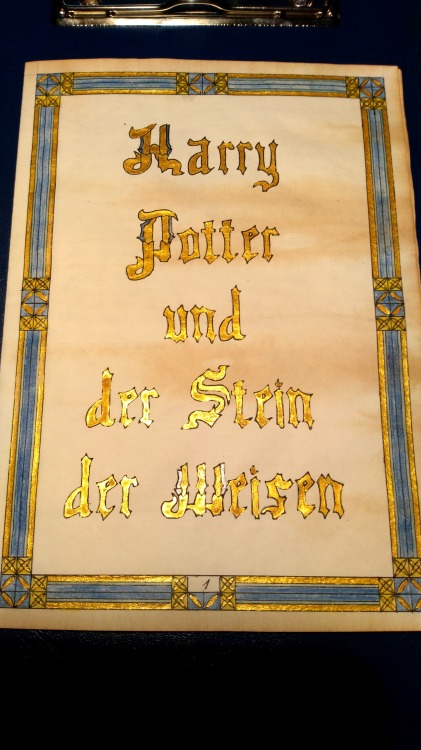 Harry
Potter
und
der Stein
der Weisen
1